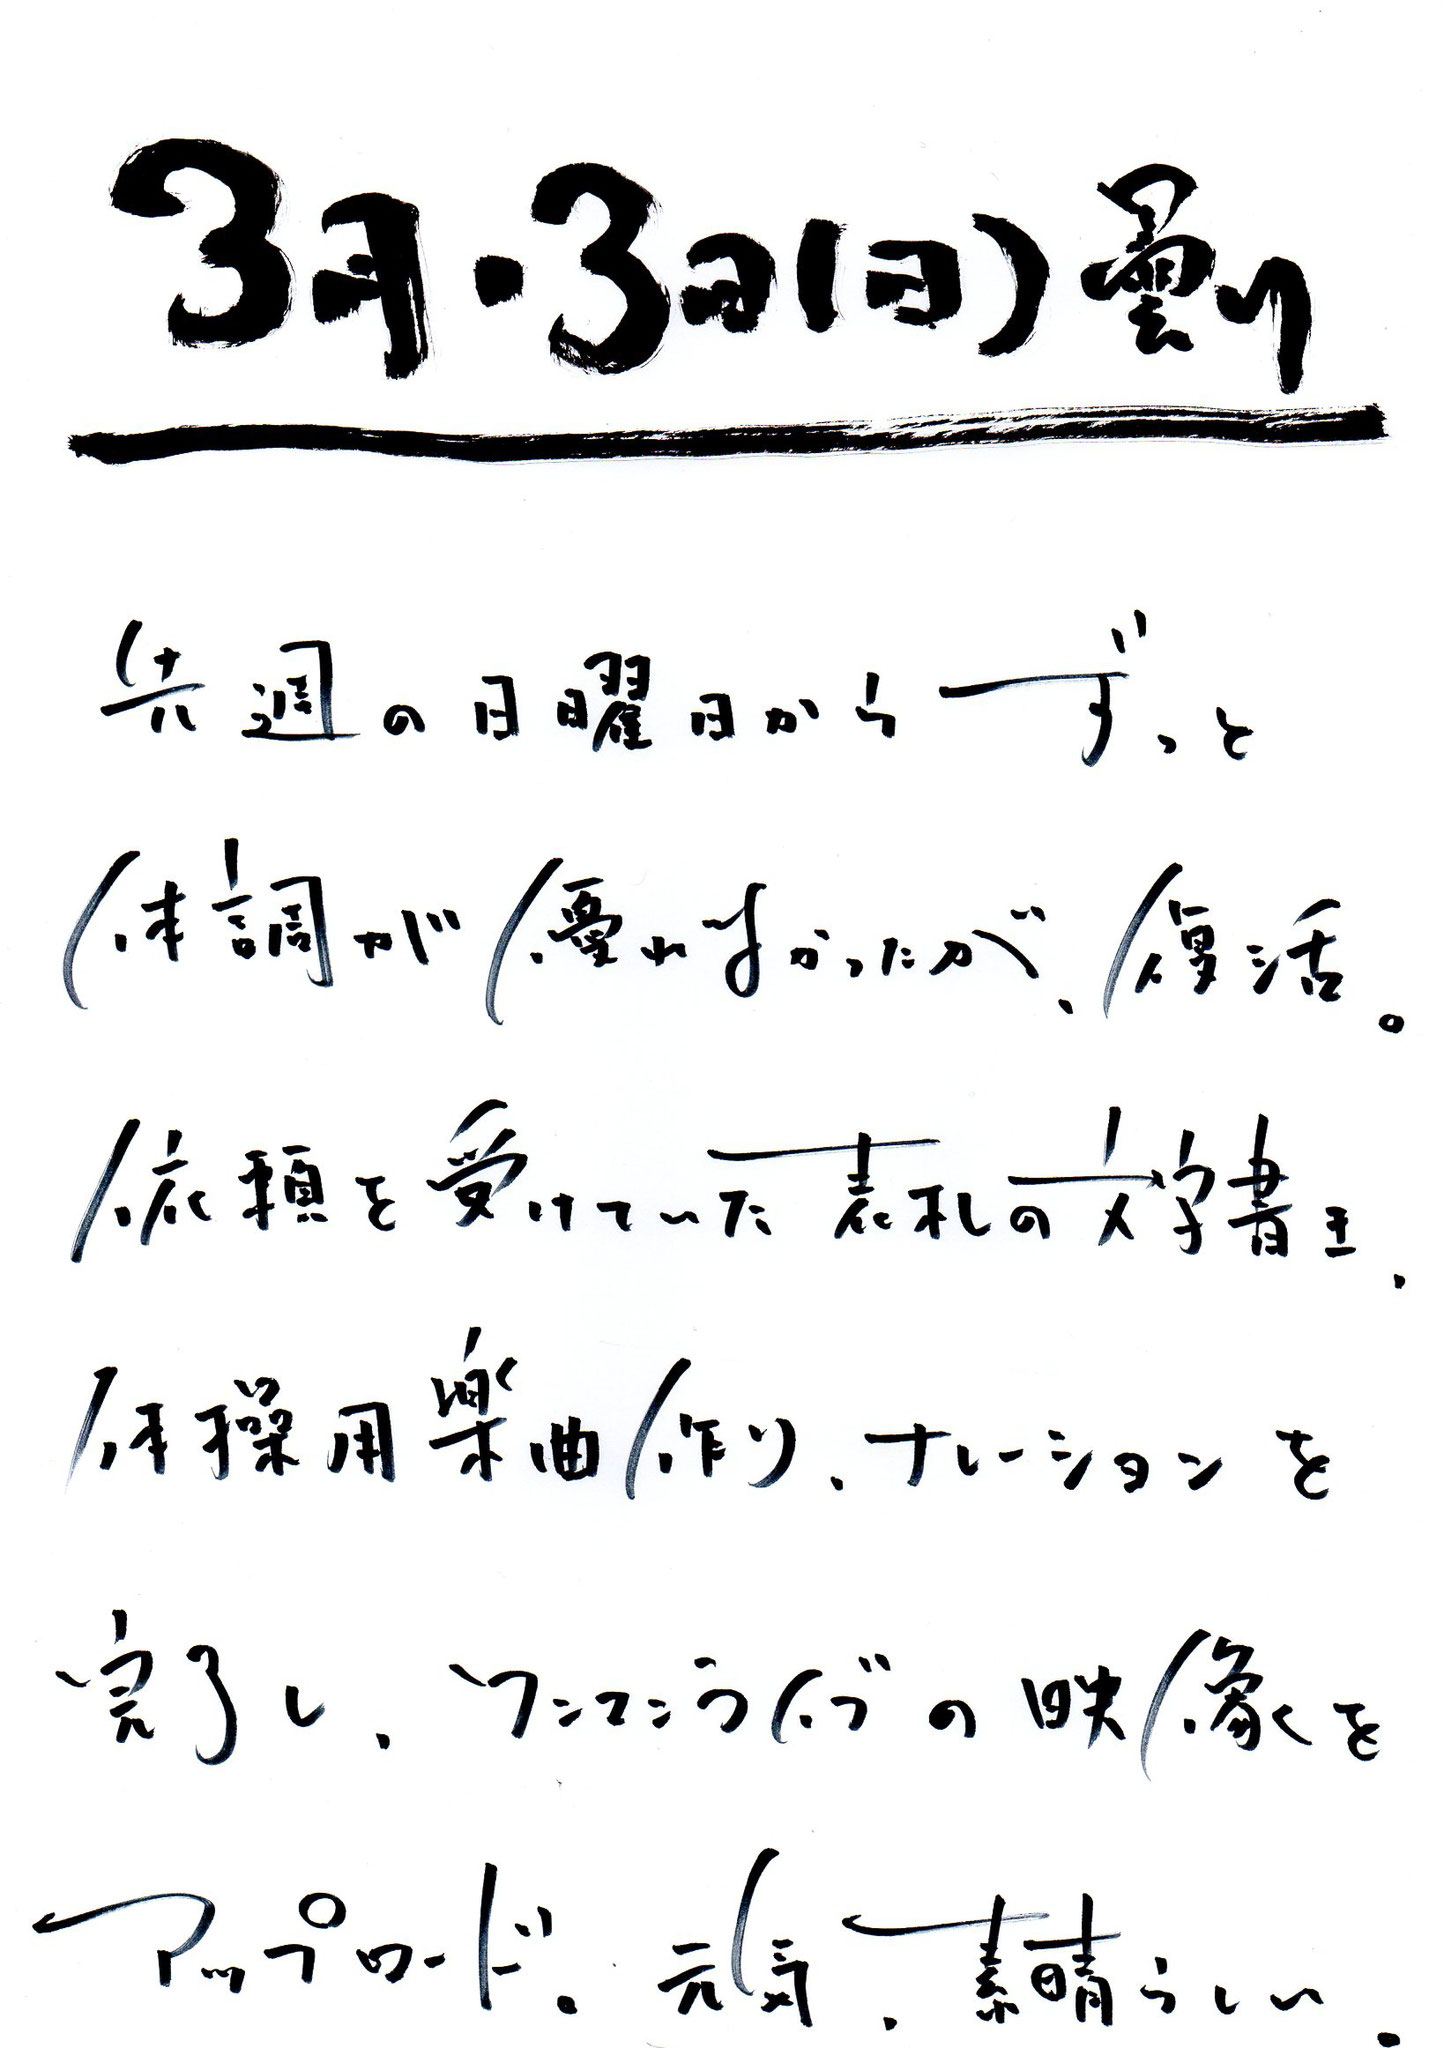 3月・3日(日)曇り
先週の日曜日からずっと
体調が優れなかったが、復活。
依頼を受けていた表札の文字書き、
体操用楽曲作り、ナレーションを
完了し、ワンマンライブの映像を
アップロード。元気、素晴らしい、